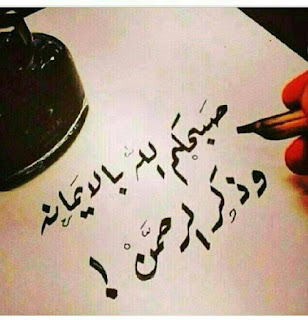 صَبَّحكم اللّه بالايمَان
وذكر الرحمّن !